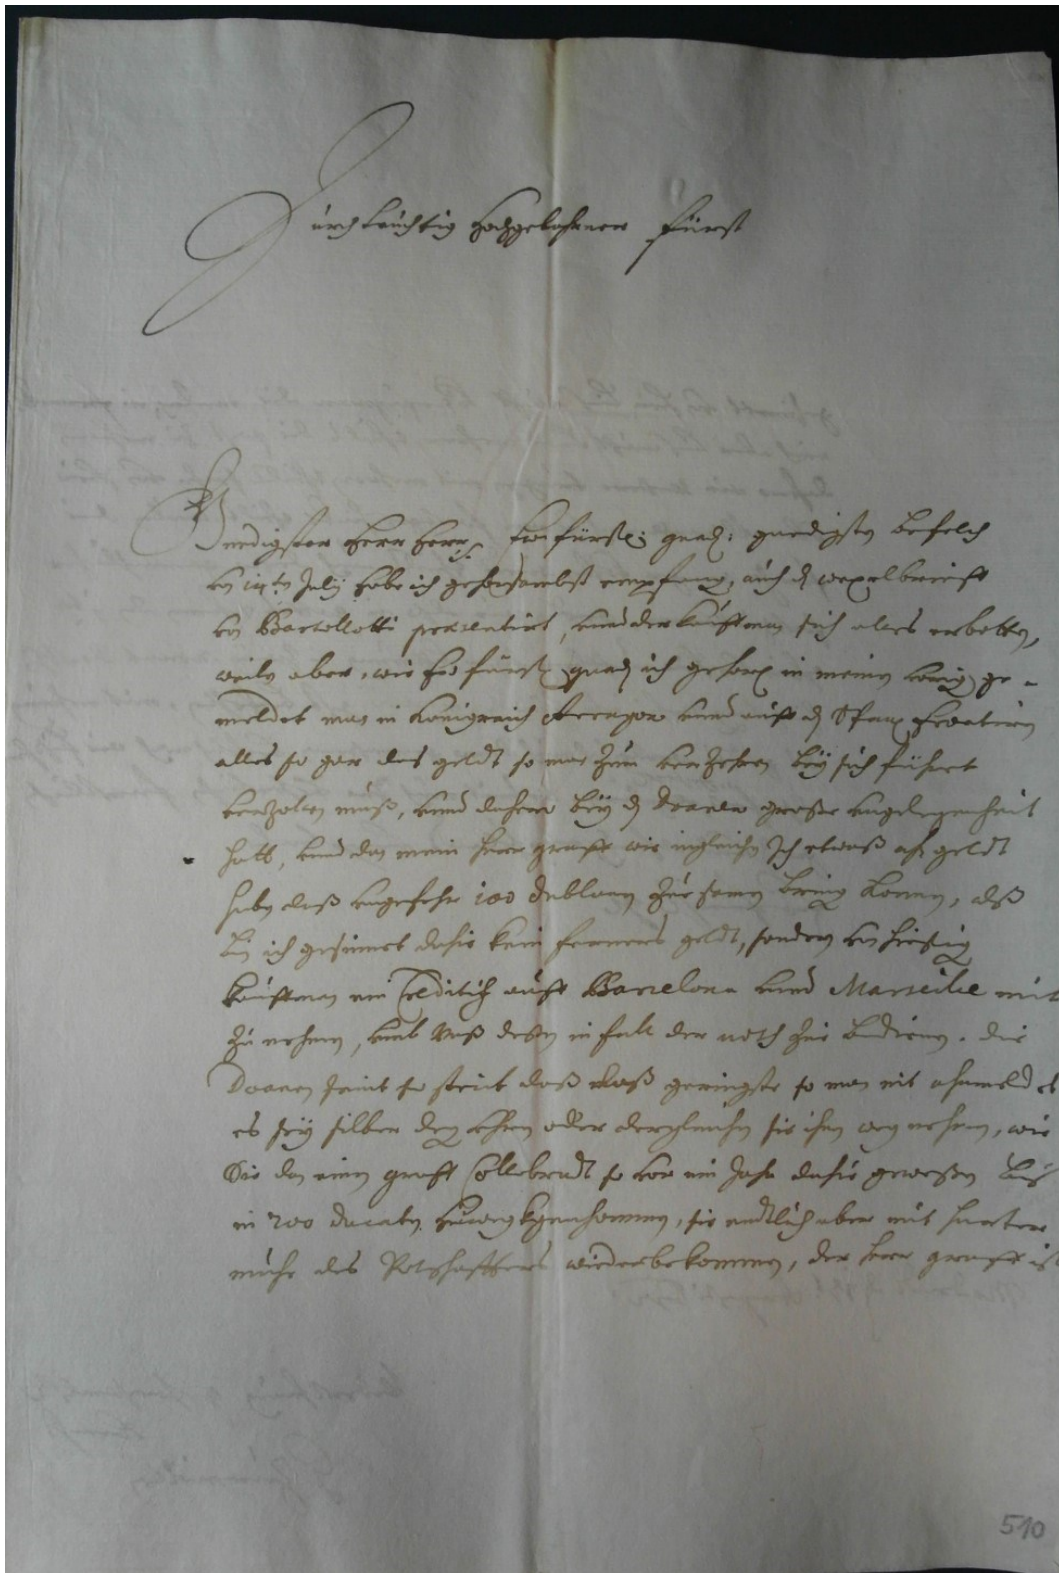 Durchleuchtig Hochgebohrner Fürst
Gnedigster Herr Herr Ew: fürstl: gnad: gnedigsten befelch
von 14ten July habe ich gehorsambst empfang, auch d wexelbrieff
von Bartollotti presentirt, unnd der Kauffman sich alles erbotten,
weiln aber, wie Ew fürstl gnad ich gehors in meinen vorig ge-
meldet man in Königreich Arragon unnd auff d Span Frontiren
alles so gar das geldt so man zum verzehren bey sich führet
verzollen muß, unnd daherr bey d Doanen große ungelegenheit
hatt, unnd dan mein Herr graff wie ingleichen Ich etwaß ahn geldt
haben daß ungefehr 100 dublonen zusamen bring konnen, alß
bin ich gesinnet dahir kein ferners geldt, sondern von hiesig
Kauffman ein Creditif auff Barcelona unnd Marseilie mit
zu nehmen, umb unß deßen in fall der noth zu bedienen. die
Doanen seint so strict daß daß geringste so man nit ahnmeldet
es sey silber degen uhren oder dergleichen sie ihm weg nehmen, wie
Sie dan einen graff Collebradt so vor ein Jahr dahir geweßen biß
in 200 ducaten hinweg genhommen, sie endtlich aber mit harter
mühe des Potschaffters wiederbekommen, der Herr graff ist
510